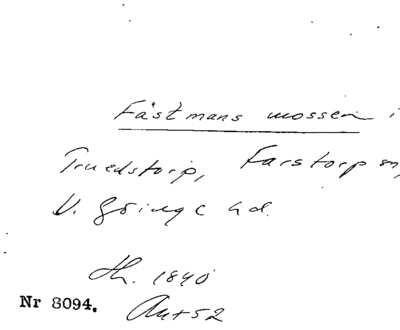 Fästmans mossen i
Truedstorp, Farstorp sn,
V. Göinge hd.
Th. 1840
Nr 8094. Ant 52